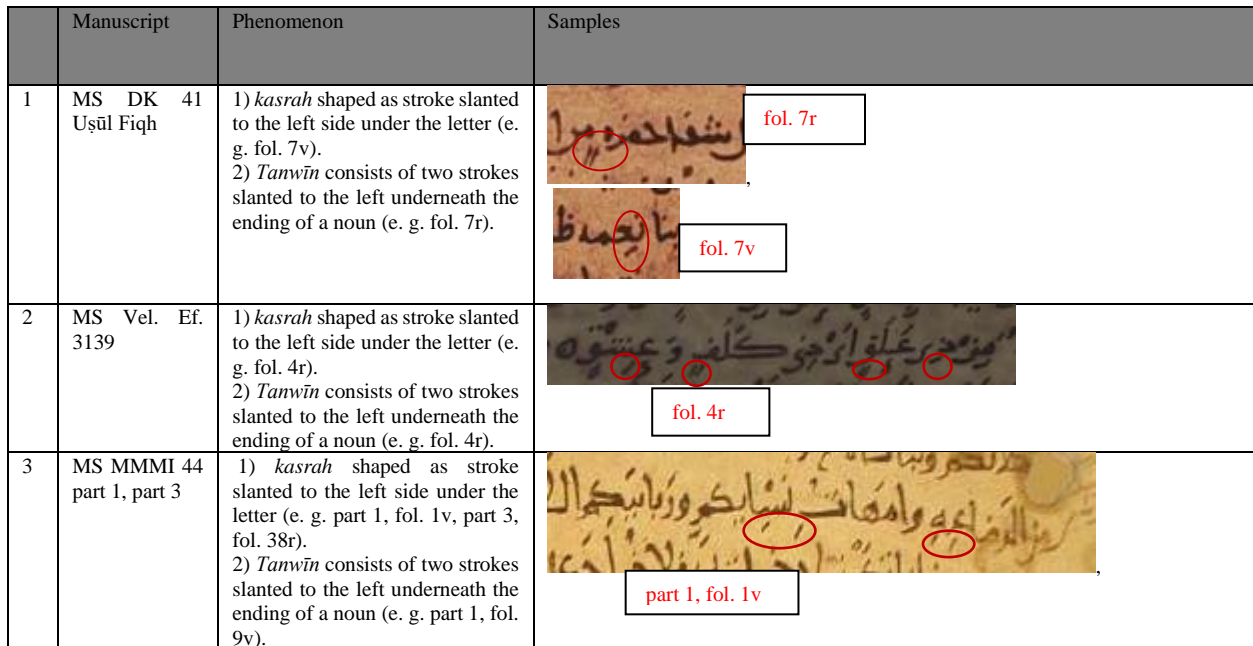 Manuscript Phenomenon Samples
1 MS DK 41 Uṣūl Fiqh
1) kasrah shaped as stroke slanted
to the left side under the letter (e.
g. fol. 7v).
2) Tanwīn consists of two strokes
slanted to the left underneath the
ending of a noun (e. g. fol. 7r).
fol. 7r
,
fol. 7v
2 MS Vel. Ef. 3139
1) kasrah shaped as stroke slanted
to the left side under the letter (e.
g. fol. 4r).
2) Tanwīn consists of two strokes
slanted to the left underneath the
ending of a noun (e. g. fol. 4r).
fol. 4r
3 MS MMMI 44 part 1, part 3
1) kasrah shaped as stroke
slanted to the left side under the
letter (e. g. part 1, fol. 1v, part 3,
fol. 38r).
2) Tanwīn consists of two strokes
slanted to the left underneath the
ending of a noun (e. g. part 1, fol.
9v).
وامهات نسايكم وربايبكم
,
part 1, fol. 1v